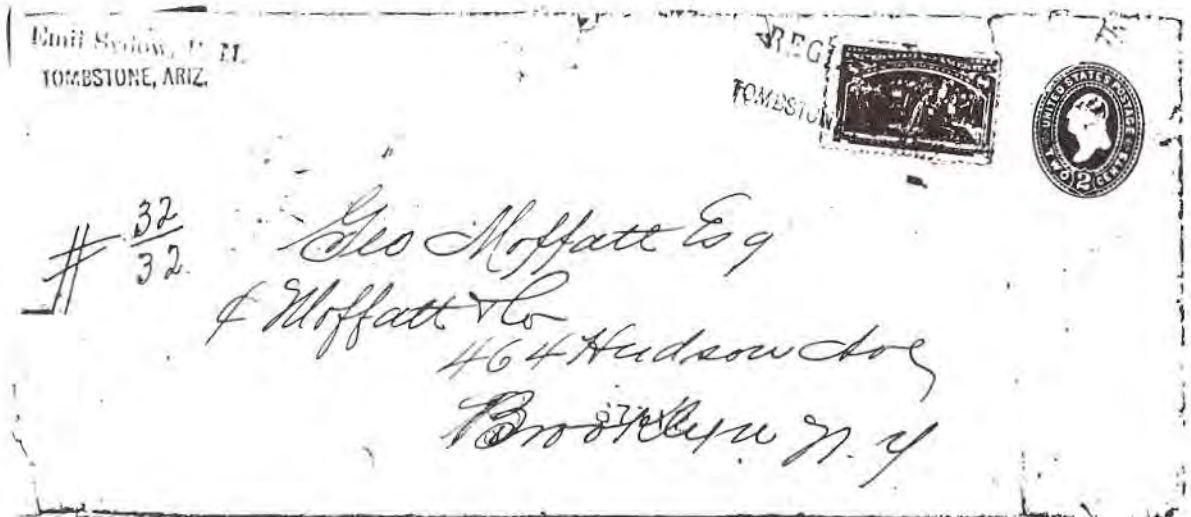 Emil Sydow, P. M.
TOMBSTONE, ARIZ.
REGI
TOMBSTON
UNITED STATES POSTAGE
TWO 2 CENTS
# 32
32
Geo Moffatt Esq
¢ Moffatt & Co
464 Hudson Ave
Brooklyn N. Y